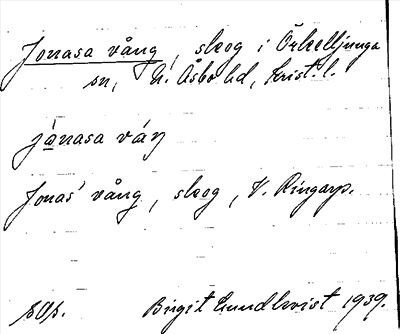 Jonasa vång, skog i Örkelljunga
sn, N. Åsbo hd, Krist. l.
jånasa våŋ
Jonas' vång, skog, V. Ringarp.
Birgit Lundkvist 1939.